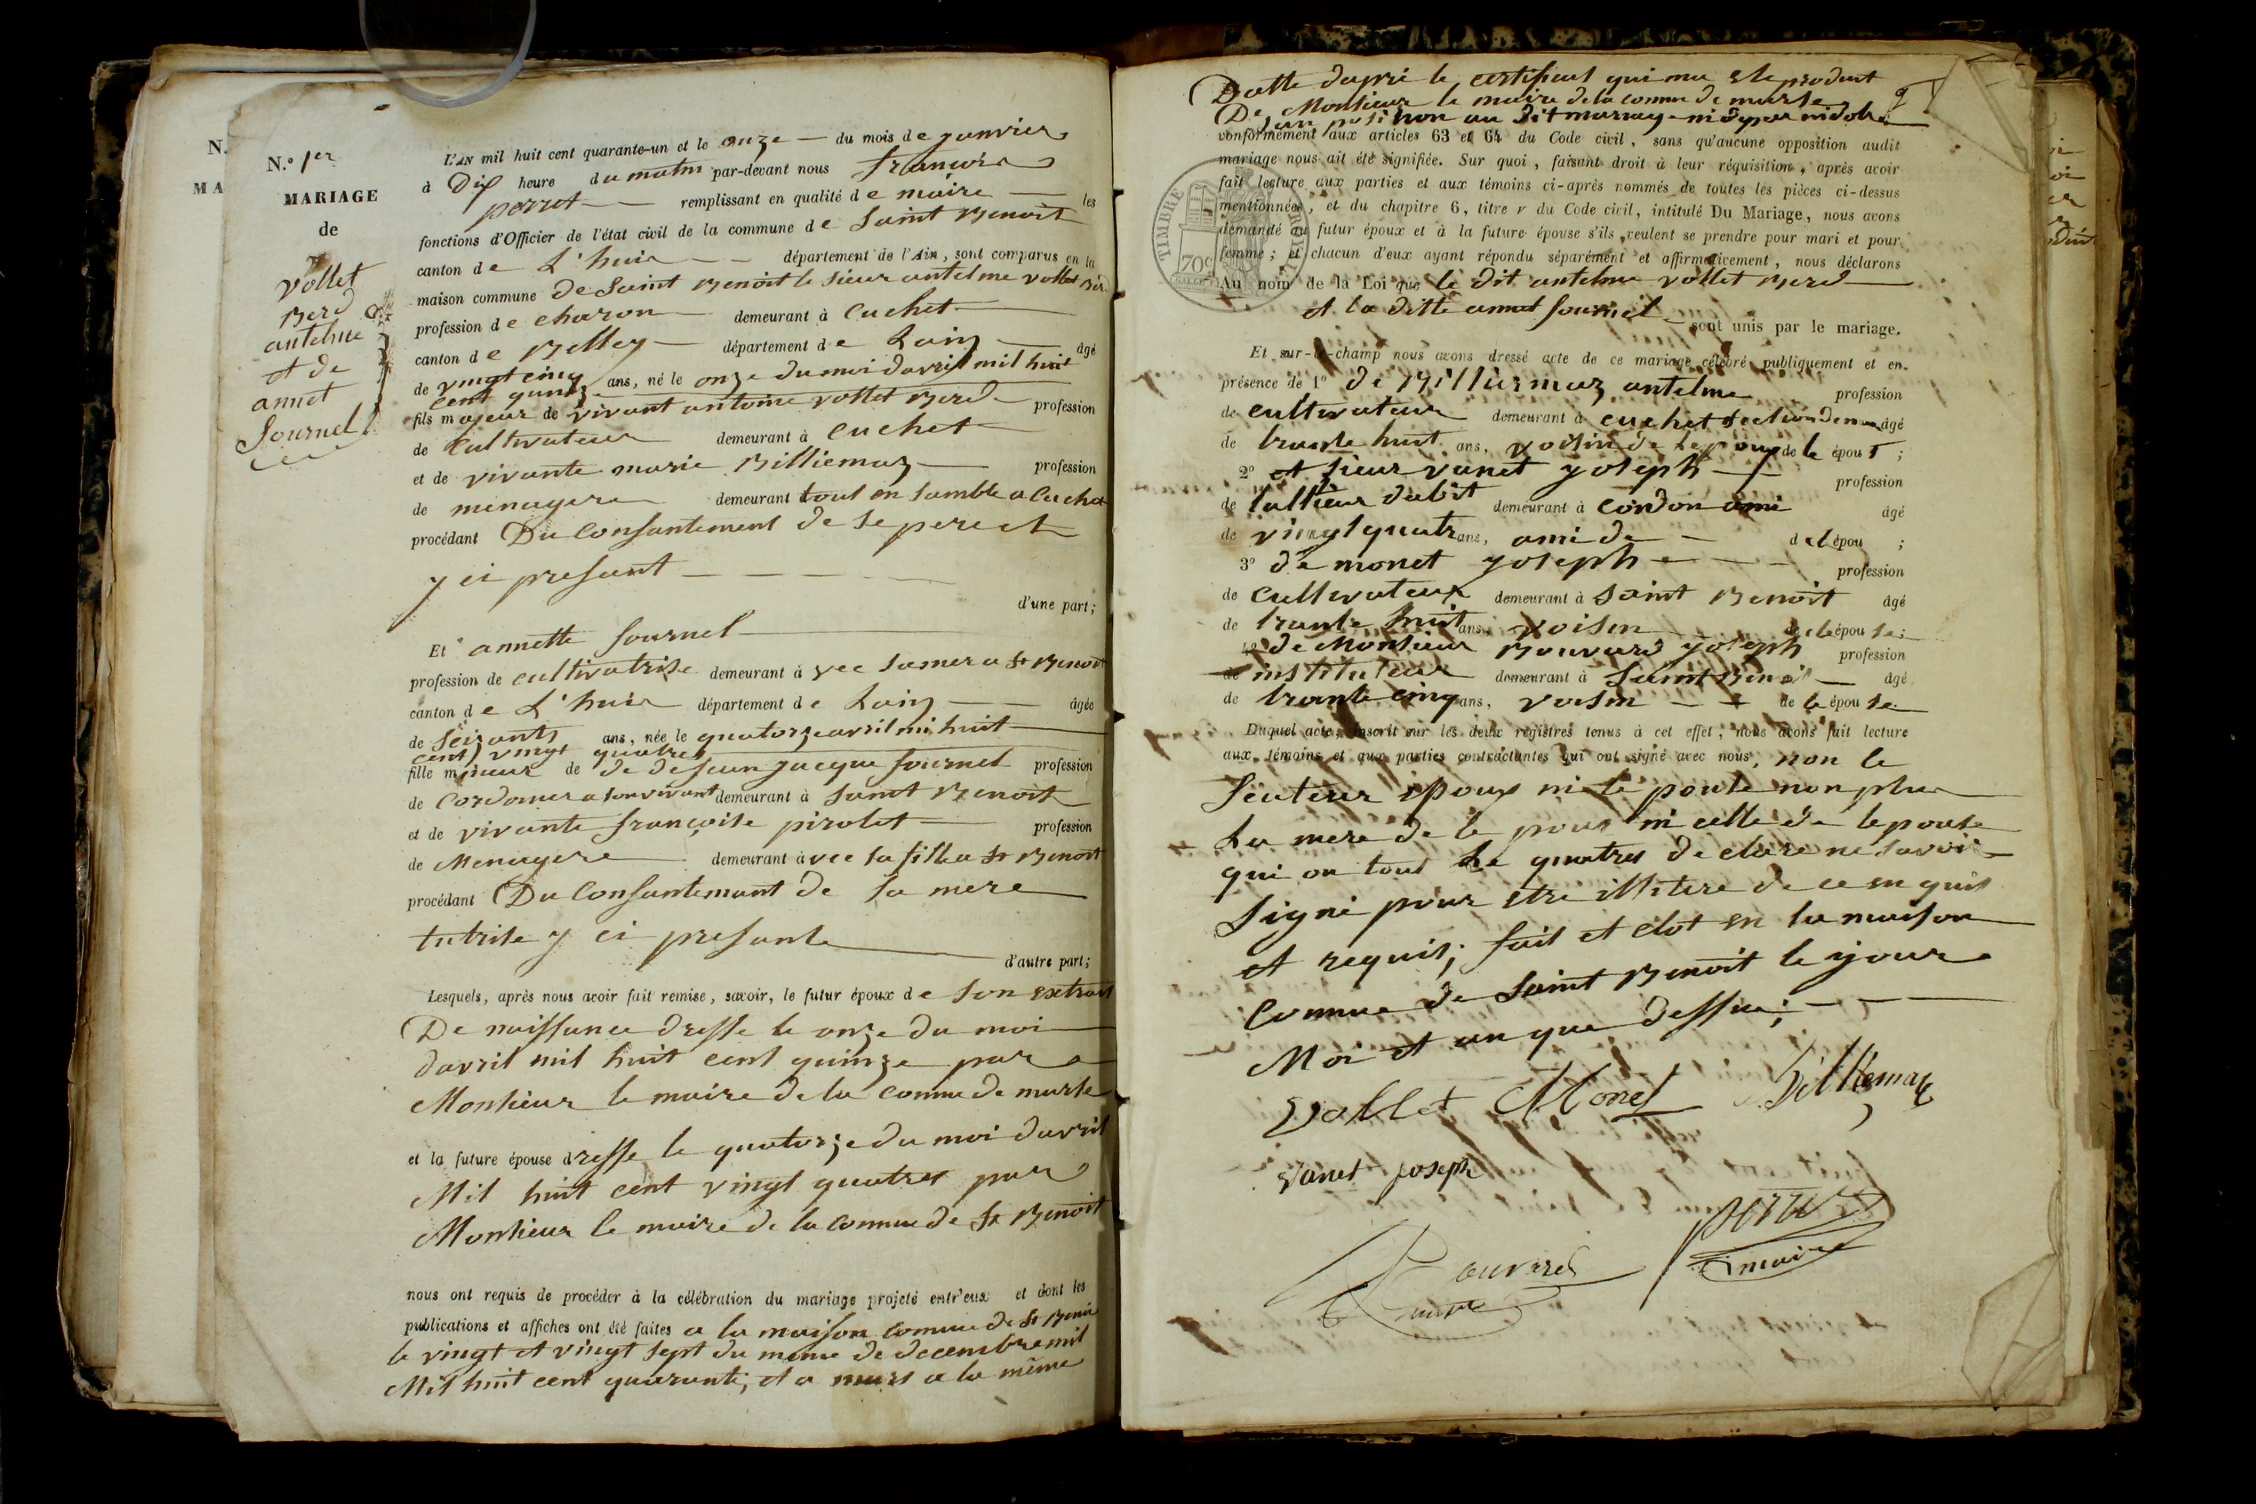 N.
MA
N.º 1er
MARIAGE
de
vollet
Berd
antelme
et de
annet
fournel
L'AN mil huit cent quarante-un et le onze du mois de janvier
à Dix heure du matin par-devant nous francois
perret remplissant en qualité de maire les
fonctions d'Officier de l'état civil de la commune de Saint Benoit
canton de L'huis département de l'Ain, sont comparus en la
maison commune de Saint Benoit le sieur antelme vollet Berd
profession de charon demeurant à cuchet
canton de Belley département de Lain âgé
de vingt cinq ans, né le onze du moi davril mil huit
cent quinze
fils majeur de vivant antoine vollet Berd profession
de cultivateur demeurant à cuchet
et de vivante marie Billiemaz profession
de menagere demeurant tout en samble a cuchet
procédant Du Consantement de se pere et
y ci presant
d'une part;
Et annette fournel
profession de cultivatrise demeurant à vec samer a St Benoit
canton de L'huis département de Lain âgée
de Seizants ans, née le quatorze avril mil huit
cent vingt quatres
fille mineur de de defeun jacque fournel profession
de cordonier a son vivant demeurant à Saint Benoit
et de vivante françoise pirolet profession
de Menagere demeurant àvec sa fille a St Benoit
procédant Du Consantemant de sa mere
tutrise y ci presante
d'autre part;
Lesquels, après nous avoir fait remise, savoir, le futur époux de son extrait
De naissance dresse le onze du moi
davril mil huit cent quinze par
Monsieur le maire de la comune de murse
et la future épouse dresse le quatorze du moi davril
Mil huit cent vingt quatres par
Monsieur le maire de la comune de St Benoit
nous ont requis de procéder à la célébration du mariage projeté entr'eux et dont les
publications et affiches ont été faites a la maison comune de St Benoi
le vingt et vingt sept du meme de decembre mil
Mil huit cent quarante, et a murs a la même
Datte dapré le certificat qui ma ete produit
De Monsieur le maire de la comune de murse
oppositi non au dit mariage
conformément aux articles 63 et 64 du Code civil, sans qu'aucune opposition audit
mariage nous ait été signifiée. Sur quoi, faisant droit à leur réquisition, après avoir
fait lecture aux parties et aux témoins ci-après nommés de toutes les pièces ci-dessus
mentionnées, et du chapitre 6, titre V du Code civil, intitulé Du Mariage, nous avons
demandé au futur époux et à la future épouse s'ils veulent se prendre pour mari et pour
femme; et chacun d'eux ayant répondu séparément et affirmativement, nous déclarons
Au nom de la Loi que le dit antelme vollet Berd
et la ditte annet fournel sont unis par le mariage.
TIMBRE ROYAL
70c
Et sur-le-champ nous avons dressé acte de ce mariage célébré publiquement et en
présence de 1º de Billiermaz antelme profession
de cultivateur demeurant à cuchet section de âgé
de trante huit ans, voisin de lepoux de le époux;
2º et sieur vanet yoseph profession
de tallieur dabit demeurant à cordon ami âgé
de vingt quatr ans, ami de de lépou ;
3º de monet yoseph profession
de cultivateur demeurant à Saint Benoit âgé
de trante huit ans, voisin de lépou se;
4º de Monsieur Bouvard yoseph profession
de instituteur demeurant à Saint Benoit âgé
de trante cinq ans, voisin de le épou se
Duquel acte, inscrit sur les deux registres tenus à cet effet, nous avons fait lecture
aux témoins et aux parties contractantes qui ont signé avec nous, non le
epoux ni le poute non plus
La mere de le poux ni celle de lepouse
qui on tous Le quatres declare ne savoi
signé pour etre illitere de ce en quis
et requis; fait et clot en la maison
Comune de Saint Benoit le your
Moi et an que dessue;
vollet Monet Billiemaz
Vanet joseph
Bouvard perret
maire